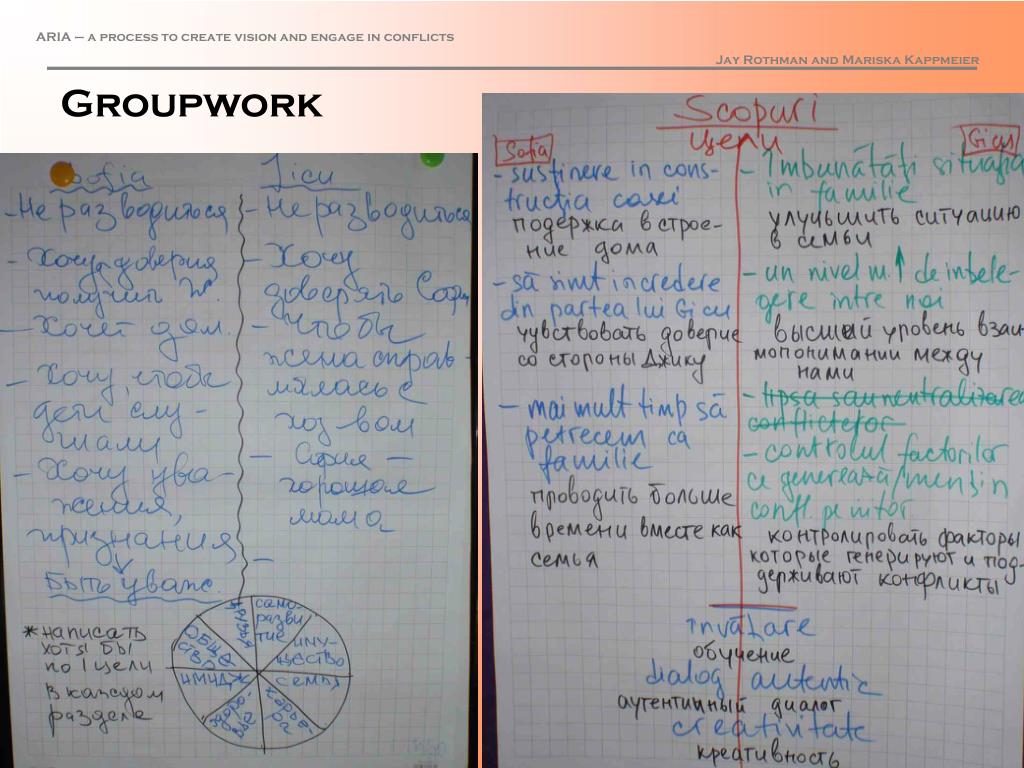 ARIA – A PROCESS TO CREATE VISION AND ENGAGE IN CONFLICTS
JAY ROTHMAN AND MARISKA KAPPMEIER
GROUPWORK
Sofia
- Не разводиться
- Хочу доверия
получить
- Хочет дом.
- Хочу, чтобы
дети слу-
шали
- Хочу ува-
жения,
признания
Быть уваж.
Jicu
- Не разводиться
- Хочу
доверять
- Чтобы
жена справ-
лялась с
хоз вом
- София -
хорошая
мама
-
* написать
хотя бы
по 1 цели
в каждом
разделе
друзья
само-
разви
тие
иму-
щество
семья
карье-
ра
здоро-
вье
имидж
обще
ство
Scopuri
цели
Sofia
- susținere in cons-
tructia casei
подержка в строе-
ние дома
- să simt incredere
din partea lui Gicu
чувствовать доверие
со стороны Джику
- mai mult timp să
petrecem ca
familie
проводить больше
времени вместе как
семья
Gicu
- Îmbunătăți situația
in familie
улучьшить ситуацию
в семьи
- un nivel m. ↑ de intele-
gere intre noi
высший уровень взаи
мопонимании между
нами
- lipsa sau neutralizarea
conflictelor
- controlul factorilor
ce generează/mențin
confl. pe viitor
контролировать факторы
которые генерируют и под-
держивают конфликты
învățare
обучение
dialog autentic
аутентичный диалог
creativitate
креативность